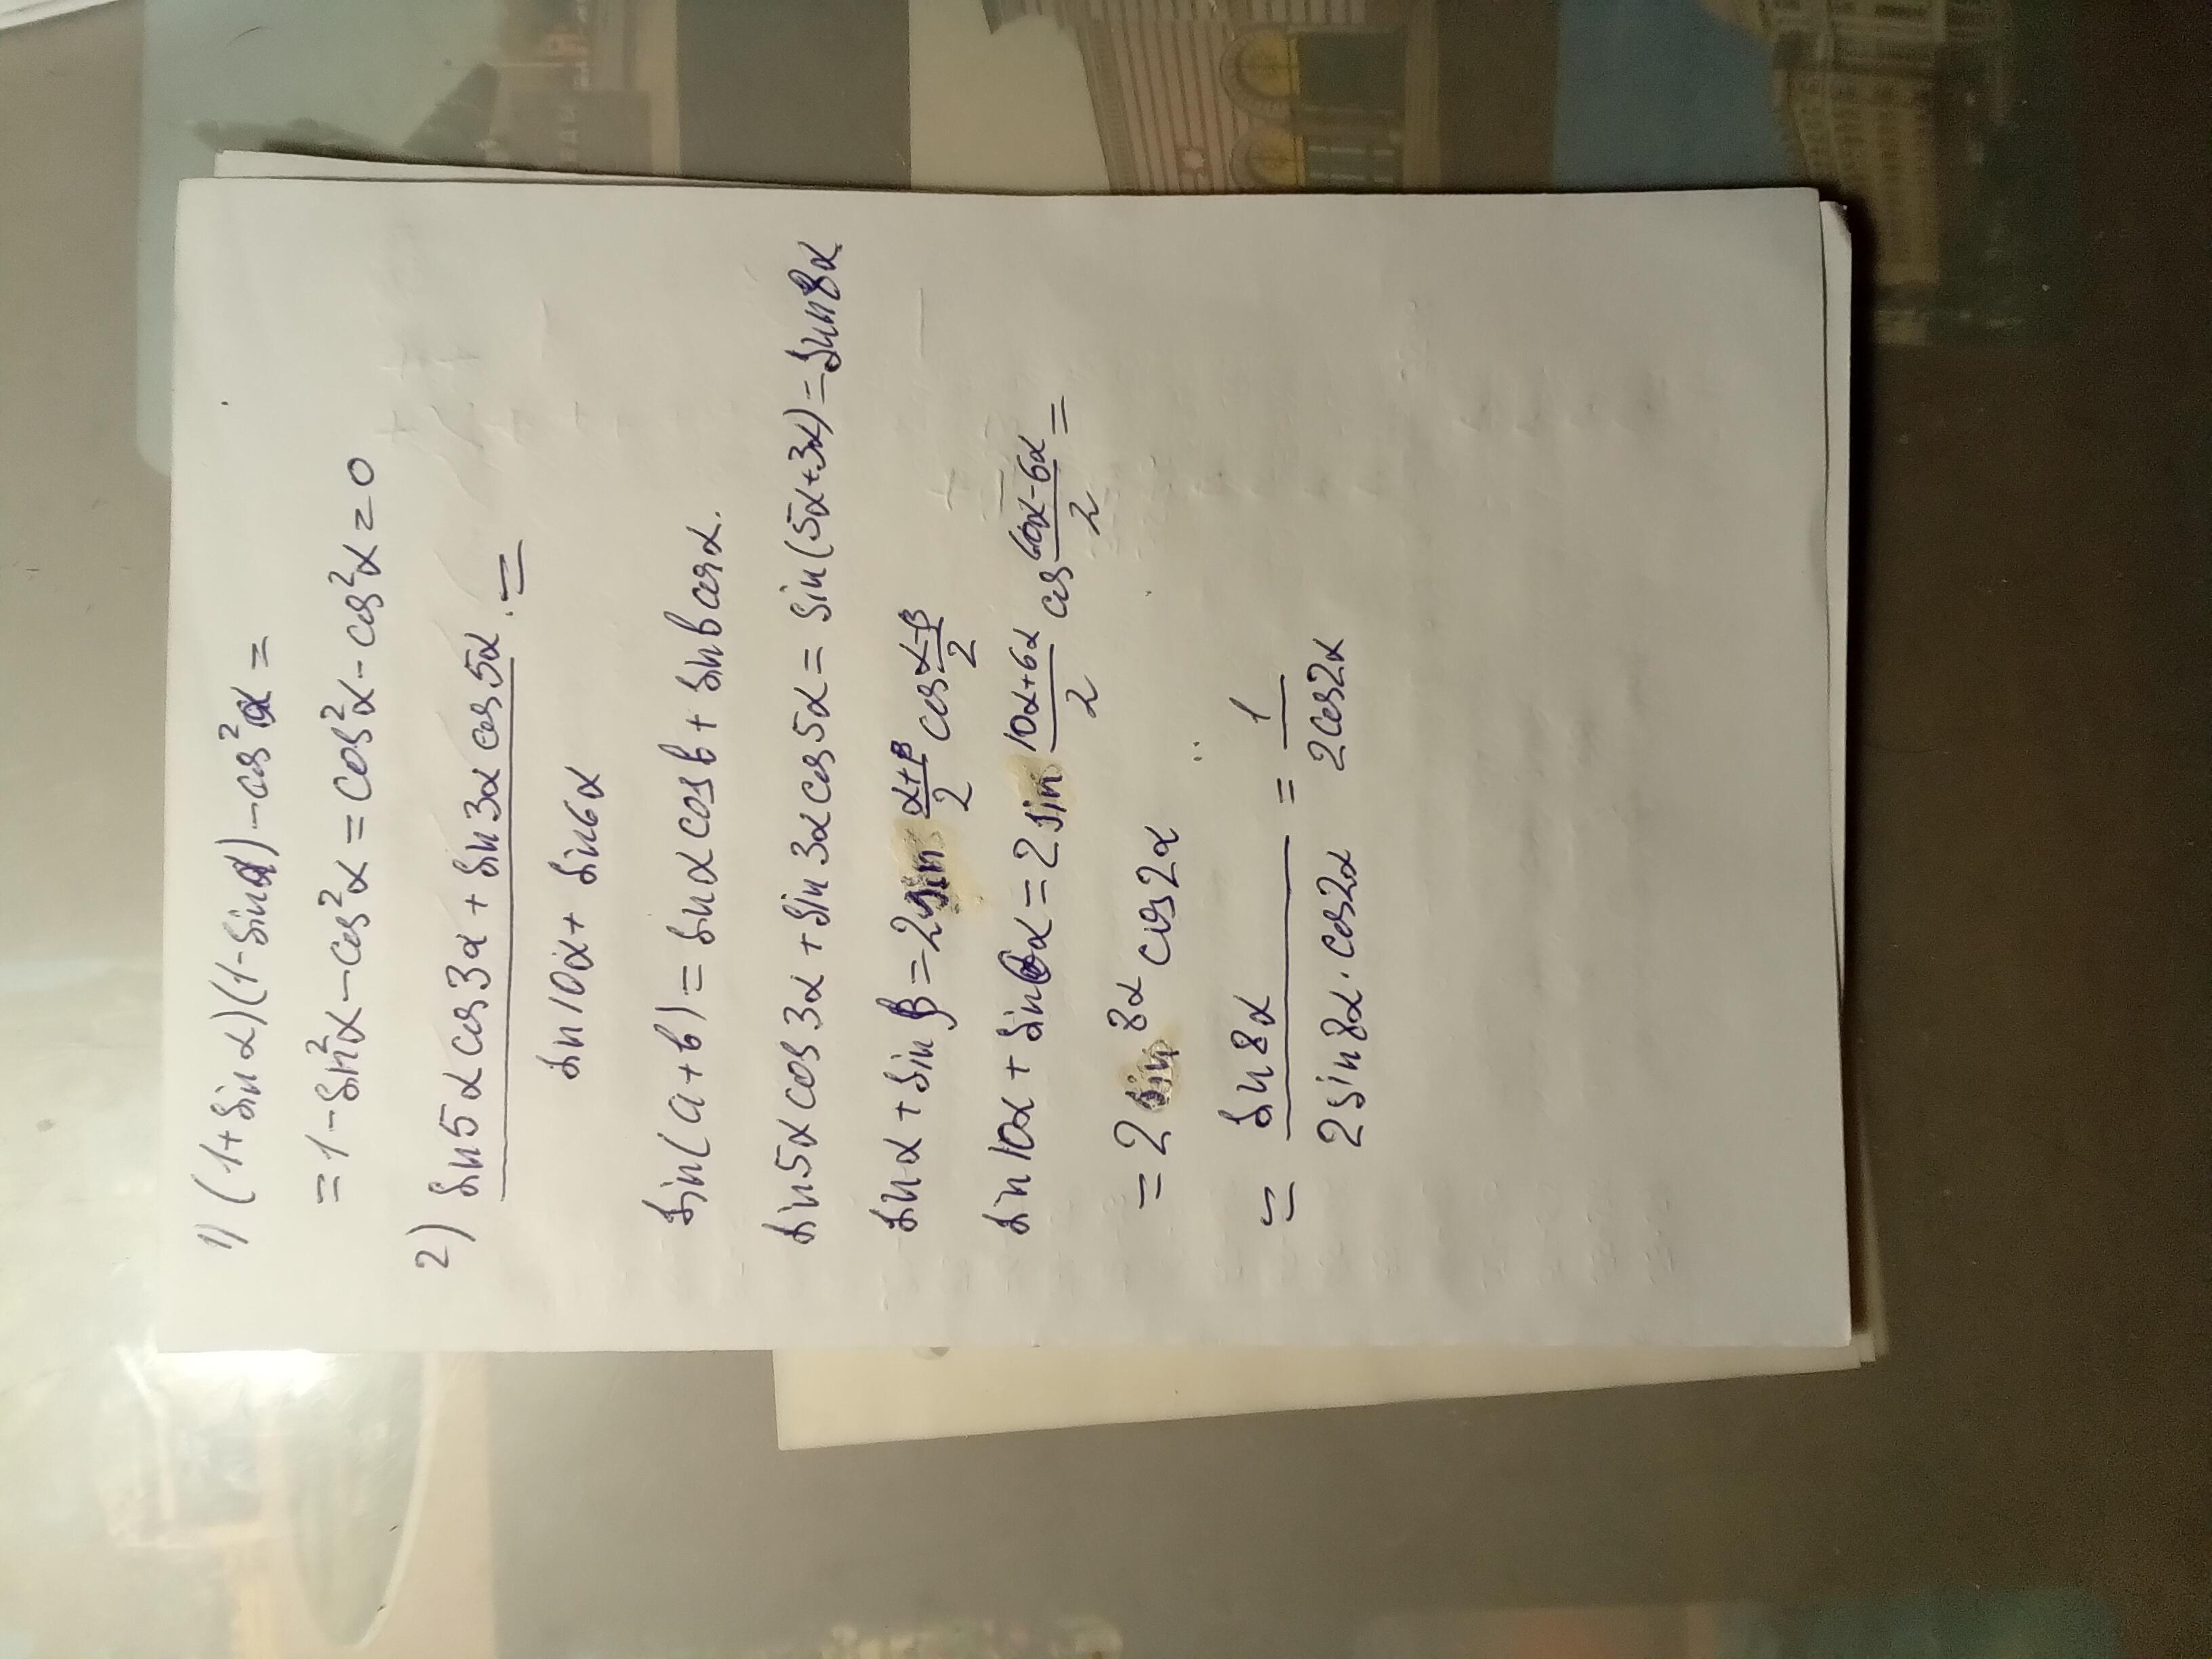 1) (1+sin α)(1-sin α) - cos²α =
= 1 - sin²α - cos²α = cos²α - cos²α = 0
2) sin 5α cos 3α + sin 3α cos 5α =
sin 10α + sin 6α
sin(a+b) = sin α cos b + sin b cos α.
sin 5α cos 3α + sin 3α cos 5α = sin(5α+3α) = sin 8α
sin α + sin β = 2 sin (α+β)/2 cos (α-β)/2
sin 10α + sin 6α = 2 sin (10α+6α)/2 cos (10α-6α)/2 =
= 2 sin 8α cos 2α
= sin 8α / (2 sin 8α · cos 2α) = 1 / (2 cos 2α)